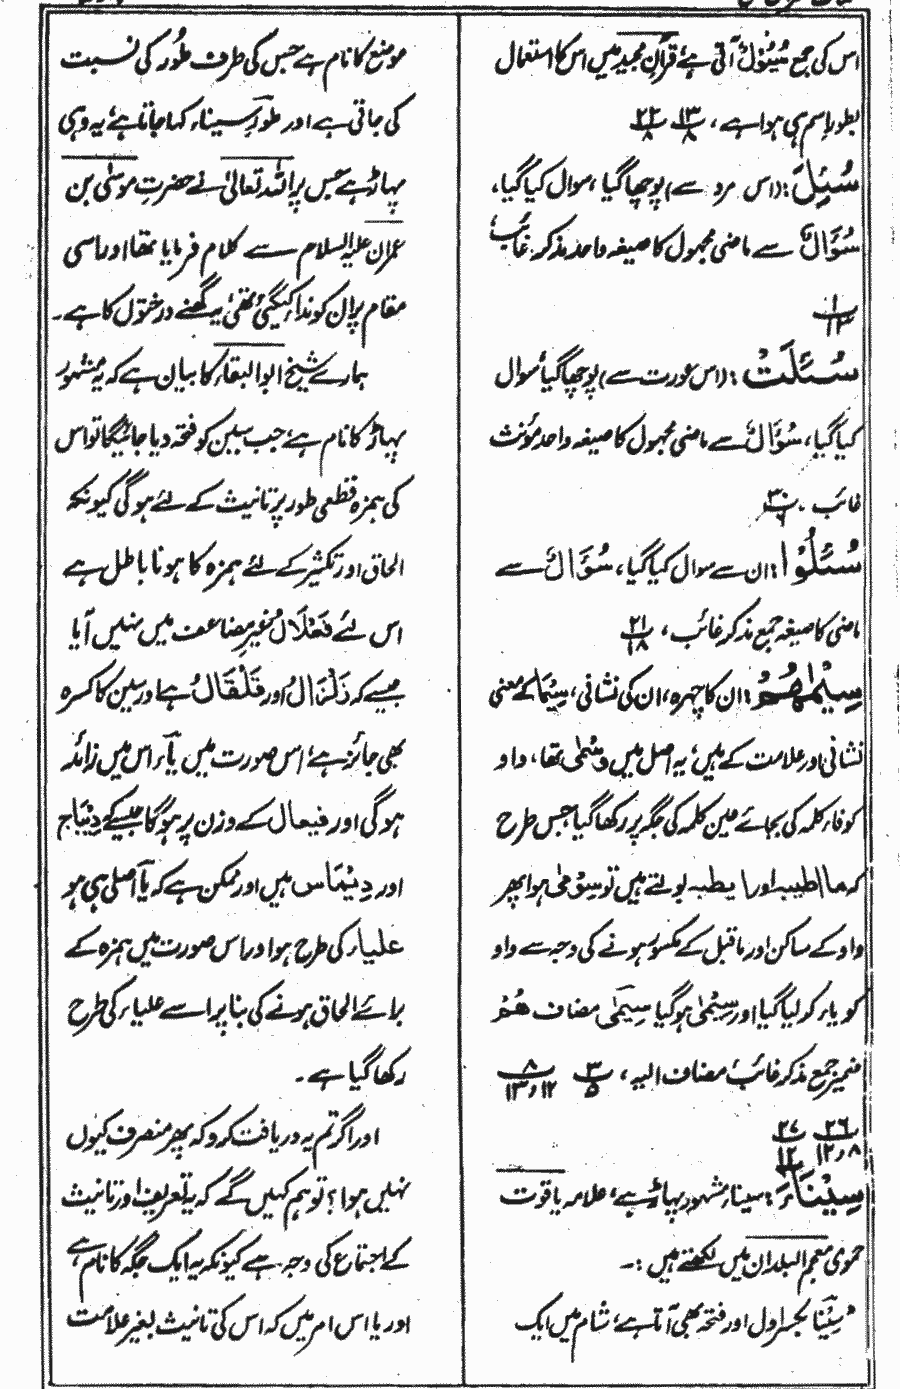 اس کی جمع سُیُوْلٌ آتی ہے، قرآن مجید میں اس کا استعمال
بطور اسم ہی ہوا ہے، ۱۳/۸ ۲۲/۸
سُئِلَ: (اس مرد سے) پوچھا گیا، سوال کیا گیا،
سُؤَالٌ سے ماضی مجہول کا صیغہ واحد مذکر غائب،
۱/۱۳
سُئِلَتْ: (اس عورت سے) پوچھا گیا، سوال
کیا گیا، سُؤَالٌ سے ماضی مجہول کا صیغہ واحد مؤنث
غائب، ۳۰/۶
سُئِلُوْا: ان سے سوال کیا گیا، سُؤَالٌ سے
ماضی کا صیغہ جمع مذکر غائب، ۲۱/۱۸
سِیْمٰھُمْ: ان کا چہرہ، ان کی نشانی، سِیْمَا کے معنی
نشانی اور علامت کے ہیں، یہ اصل میں وِسْمٰی تھا، واو
کو فاء کلمہ کی بجائے عین کلمہ کی جگہ پر رکھا گیا جس طرح
کہ ما اطیبہ اور ایطبہ بولتے ہیں تو سِوْمٰی ہوا پھر
واو کے ساکن اور ماقبل کے مکسور ہونے کی وجہ سے واو
کو یاء کر لیا گیا اور سِیْمٰی ہو گیا سِیْمٰی مضاف ھُمْ
ضمیر جمع مذکر غائب، مضاف الیہ، ۳/۵ ۸/۱۲ و ۱۳
۲۶/۸ و ۱۲ ۲۷/۱۲
سِیْنَاءَ: سیناء مشہور پہاڑ ہے، علامہ یاقوت
حموی معجم البلدان میں لکھتے ہیں:۔
"سِیْنا بکسر اول اور فتحہ بھی آتا ہے، شام میں ایک
موضع کا نام ہے جس کی طرف طُور کی نسبت
کی جاتی ہے اور طور سیناء کہا جاتا ہے، یہ وہی
پہاڑ ہے جس پر اللہ تعالیٰ نے حضرت موسٰی بن
عمران علیہ السلام سے کلام فرمایا تھا اور اسی
مقام پر ان کو نداء کی گئی تھی، یہ گھنے درختوں کا ہے۔
ہمارے شیخ ابو البقاء کا بیان ہے کہ یہ مشہور
پہاڑ کا نام ہے، جب سین کو فتحہ دیا جائیگا تو اس
کی ہمزہ قطعی طور پر تانیث کے لئے ہو گی کیونکہ
الحاق اور تکثیر کے لئے ہمزہ کا ہونا باطل ہے
اس لئے فَعْلَالٌ غیر مضاعف میں نہیں آیا
جیسے کہ زَلْزَالٌ اور قَلْقَالٌ ہے اور سین کا کسرہ
بھی جائز ہے، اس صورت میں یاء اس میں زائد
ہو گی اور فیعال کے وزن پر ہو گا جیسے کے دِیْبَاج
اور دِیْمَاس ہیں اور ممکن ہے کہ یا اصلی ہی ہو
علیاء کی طرح ہوا اور اس صورت میں ہمزہ کے
برائے الحاق ہونے کی بنا پر اسے علیاء کی طرح
رکھا گیا ہے۔
اور اگر تم یہ دریافت کرو کہ پھر منصرف کیوں
نہیں ہوا؟ تو ہم کہیں گے کہ یہ تعریف اور تانیث
کے اجتماع کی وجہ ہے کیونکہ یہ ایک جگہ کا نام ہے
اور یا اس امر میں کہ اس کی تانیث بغیر علامت